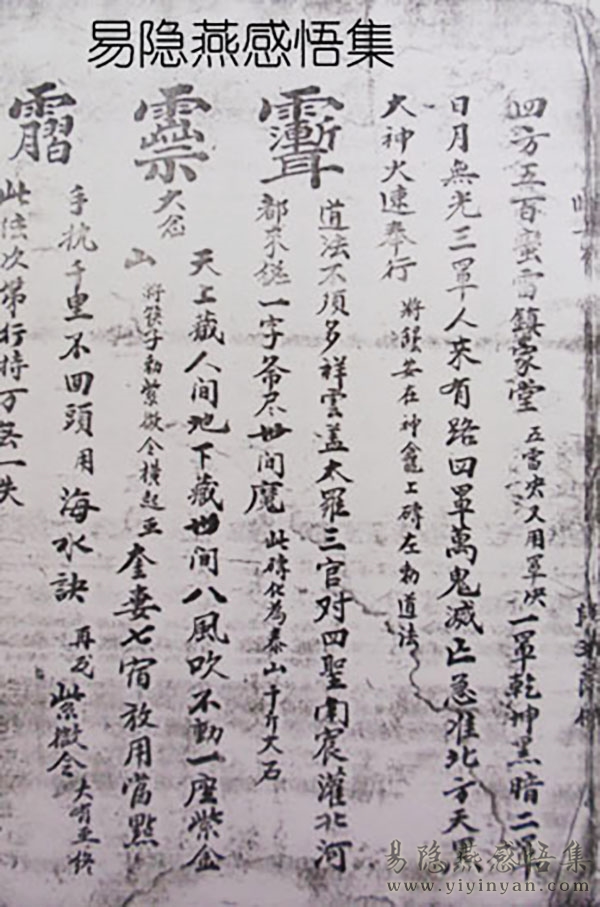 易隐燕感悟集
四方五百蛮雷鎮家堂 五雷决又用罩决 一罩乾坤黑暗二罩
日月無光三罩人来有路四罩萬鬼滅亡急准北方天罡
大神火速奉行 將 安在神龕上磚左勅道法
道法不須多祥雲盖太羅三官对四聖南宸灌北河
都来 一字 尽世间魔 此磚化為泰山千斤大石
大忿
天上藏人间地下藏世间八風吹不動一座紫金
山 將筷子勅紫微令横起 奎婁七宿放用當點
手抗千里不回頭 用 海水訣 再 紫微令
此法次第行持万無一失
易隐燕感悟集
www.yiyinyan.com